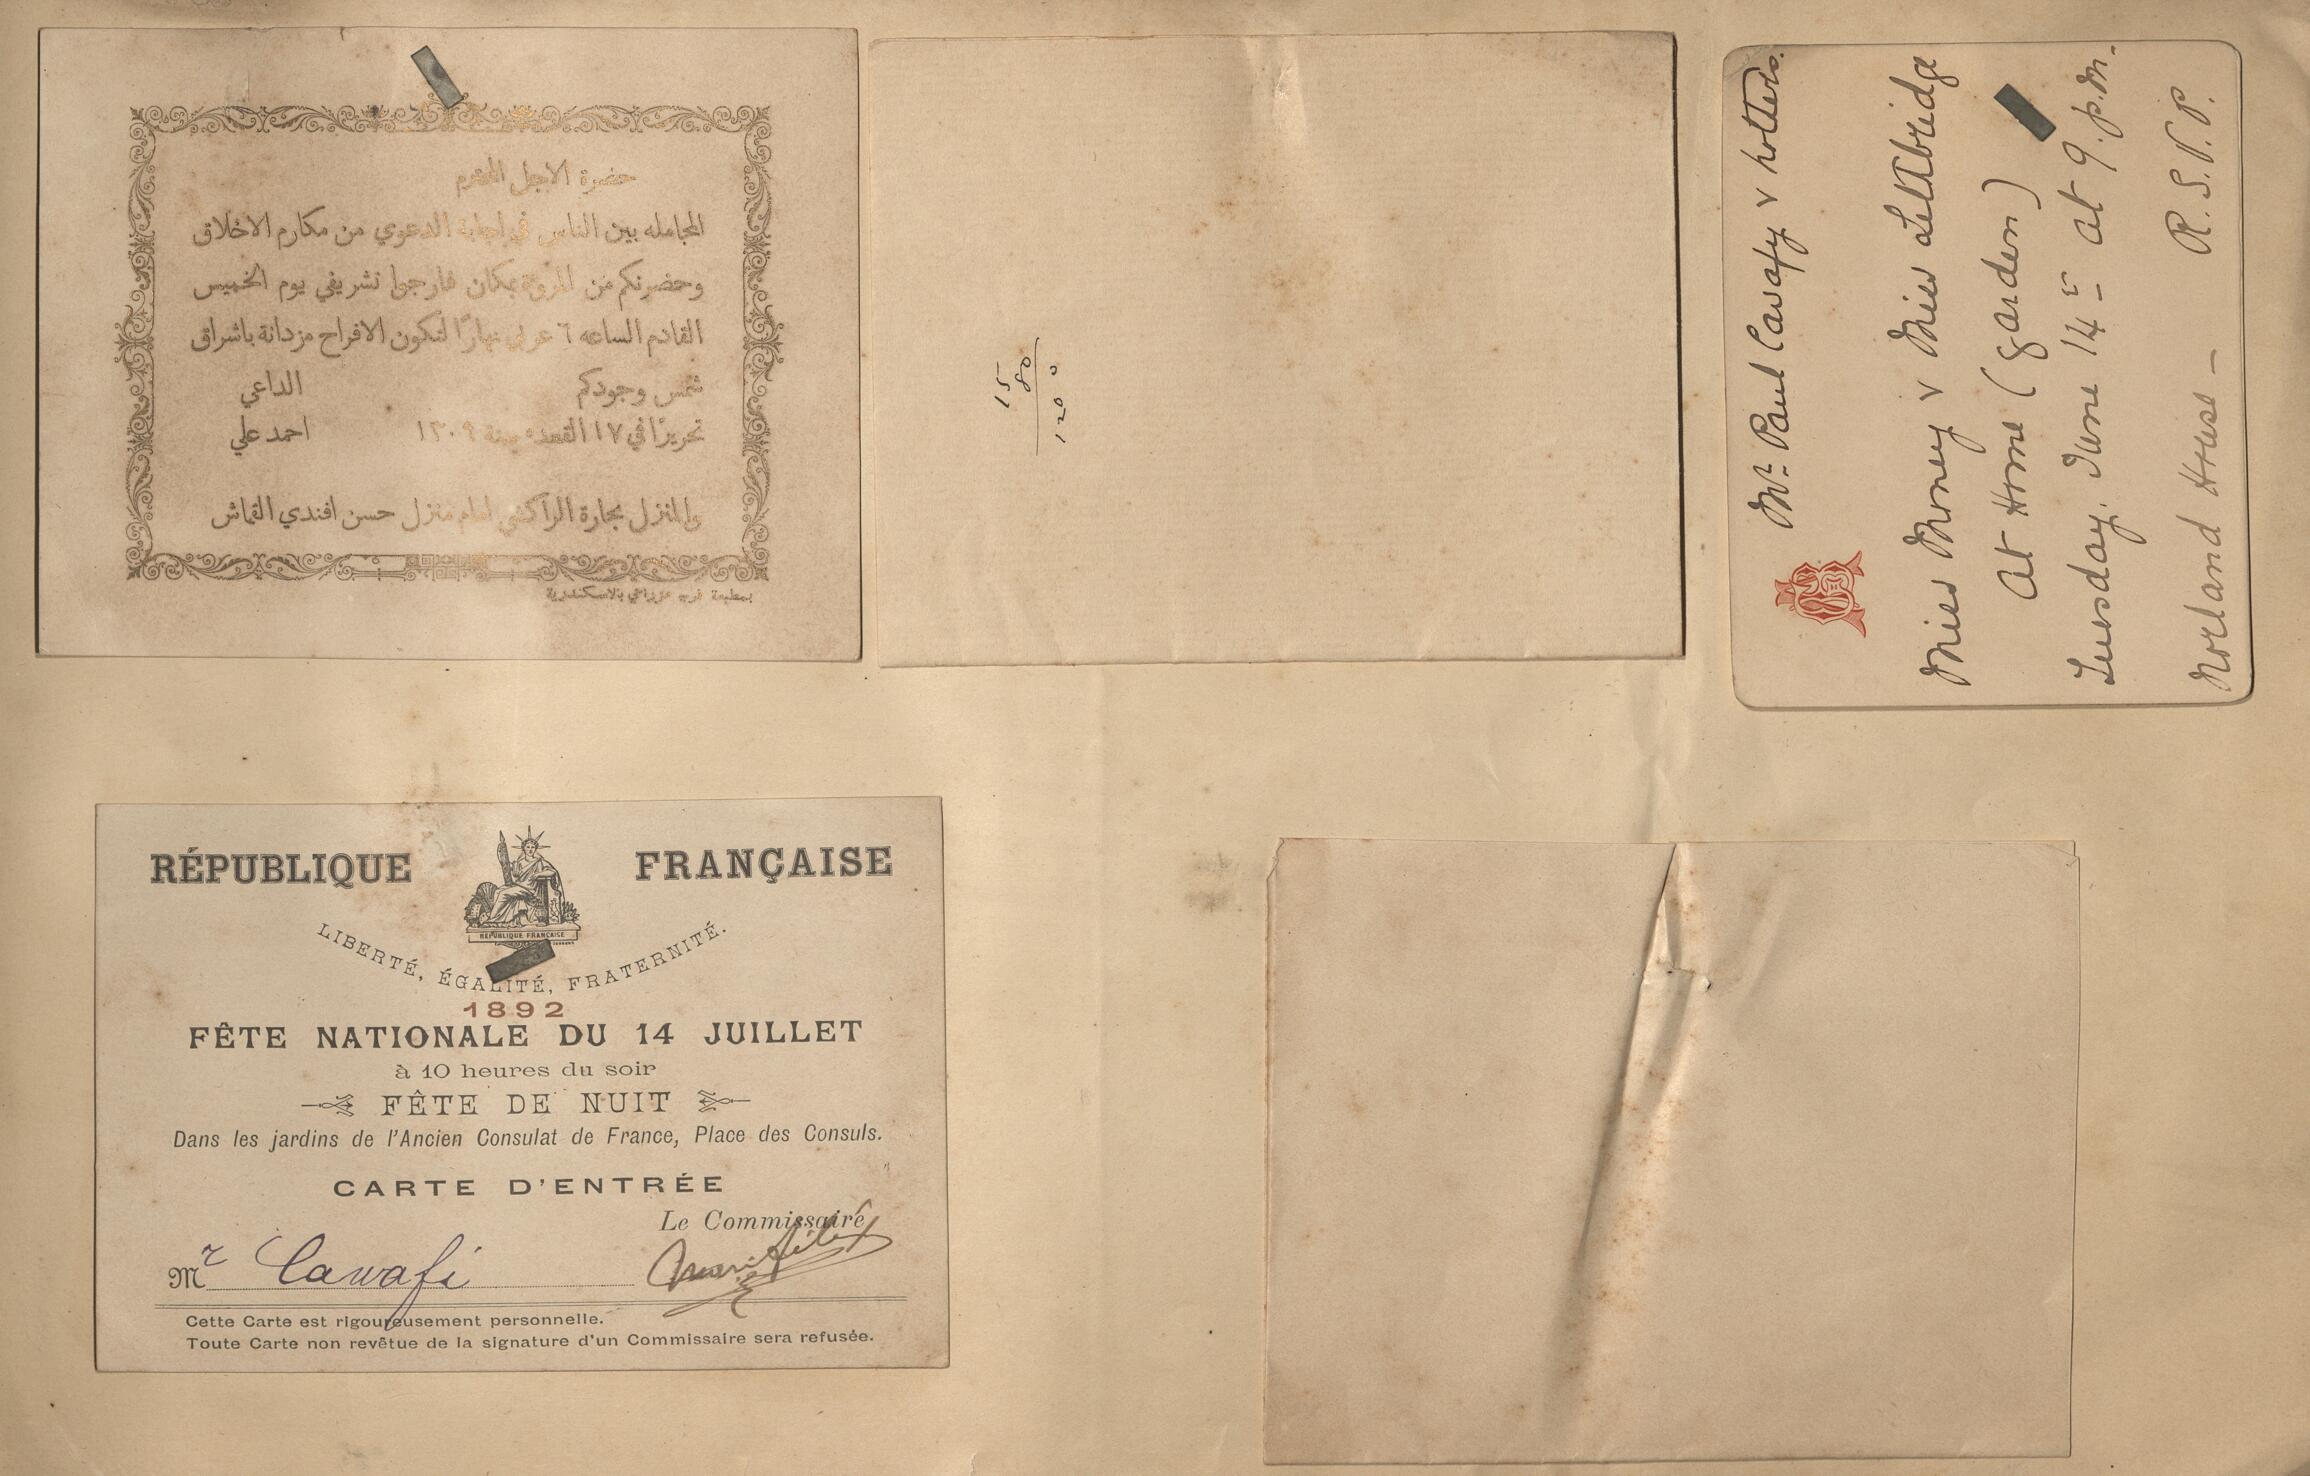 حضرة الاجل المحترم
المجامله بين الناس في اجابة الدعوي من مكارم الاخلاق
وحضرتكم من المروة بمكان فارجوا تشريفي يوم الخميس
القادم الساعه ٦ عربي نهارًا لتكون الافراح مزدانة باشراق
شمس وجودكم الداعي
تحريرًا في ١٧ القعده سنة ١٣٠٩ احمد علي
والمنزل بحارة الراكشي امام منزل حسن افندي القماش
بمطبعة بالاسكندرية
15
80
1200
Mr. Paul Cavafy & brothers.
Miss Money & Miss Lethbridge
At Home (garden)
Tuesday. June 14th at 9. p.m.
Norland House – R.S.V.P.
RÉPUBLIQUE FRANÇAISE
REPUBLIQUE FRANÇAISE
LIBERTÉ, ÉGALITÉ, FRATERNITÉ.
1892
FÊTE NATIONALE DU 14 JUILLET
à 10 heures du soir
FÊTE DE NUIT
Dans les jardins de l'Ancien Consulat de France, Place des Consuls.
CARTE D'ENTRÉE
Le Commissaire
Mr Cavafi
Cette Carte est rigoureusement personnelle.
Toute Carte non revêtue de la signature d'un Commissaire sera refusée.